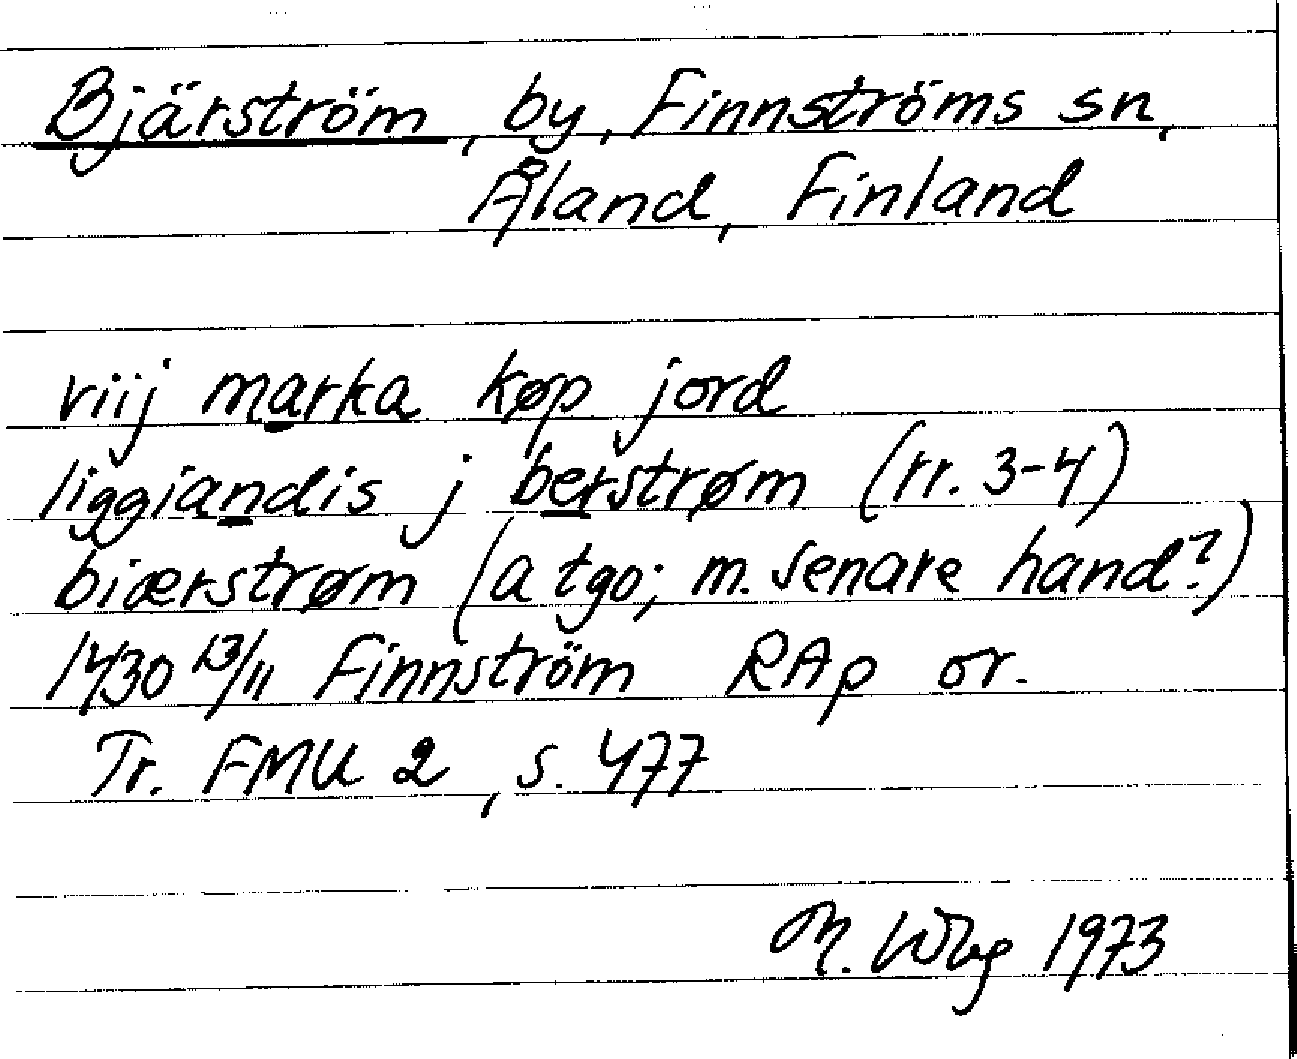 Bjärström, by, Finnströms sn,
Åland, Finland
viij marka køp jord
liggiandis j berstrøm (rr. 3-4)
biærstrøm (a tgo; m. senare hand?)
1430 13/11 Finnström RAp or.
Tr. FMU 2, s. 477
M. Wbg 1973